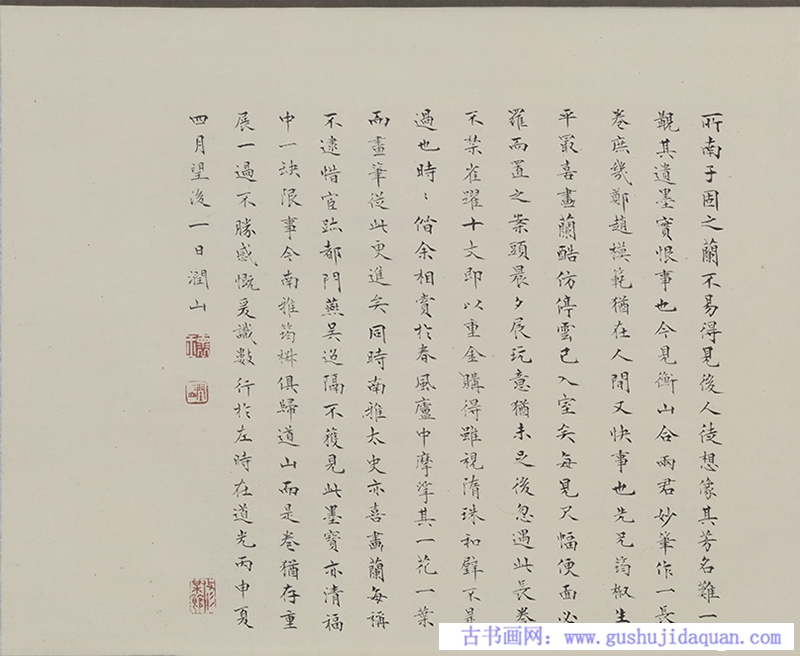 所南子固之蘭不易得見後人徒想像其芳名難一
覩其遺墨實恨事也今見衡山合兩君妙筆作一長
卷庶幾鄭趙模範猶在人間又快事也先兄筠椒生
平最喜畫蘭酷仿停雲已入室矣每見尺幅便面必
羅而置之案頭晨夕展玩意猶未足後忽遇此長卷
不禁雀躍十文即以重金購得雖視隋珠和璧不是
過也時〻偕余相賞於春風廬中摩挲其一花一葉
而畫筆從此更進矣同時南雅太史亦喜畫蘭每稱
不逮惜宦跡都門燕吳迢隔不獲見此墨寶亦清福
中一缺限事今南雅筠椒俱歸道山而是卷猶存重
展一過不勝感慨爰識數行於左時在道光丙申夏
四月望後一日潤山
古书画网：www.gushujidaquan.com